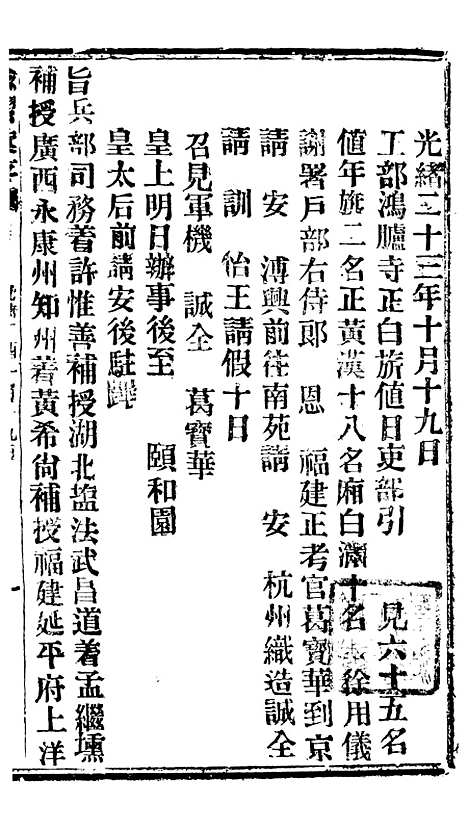 光緒二十三年十月十九日
工部鴻臚寺正白旗值日吏部引　見六十五名
值年旗二名正黃漢十八名廂白滿十名　徐用儀
謝署戶部右侍郎　恩　福建正考官葛寶華到京
請　安　溥興前往南苑請　安　杭州織造誠全
請　訓　怡王請假十日
召見軍機　誠全　葛寶華
皇上明日辦事後至　頤和園
皇太后前請安後駐蹕
旨兵部司務着許惟善補授湖北鹽法武昌道着孟繼壎
補授廣西永康州知州着黃希尙補授福建延平府上洋